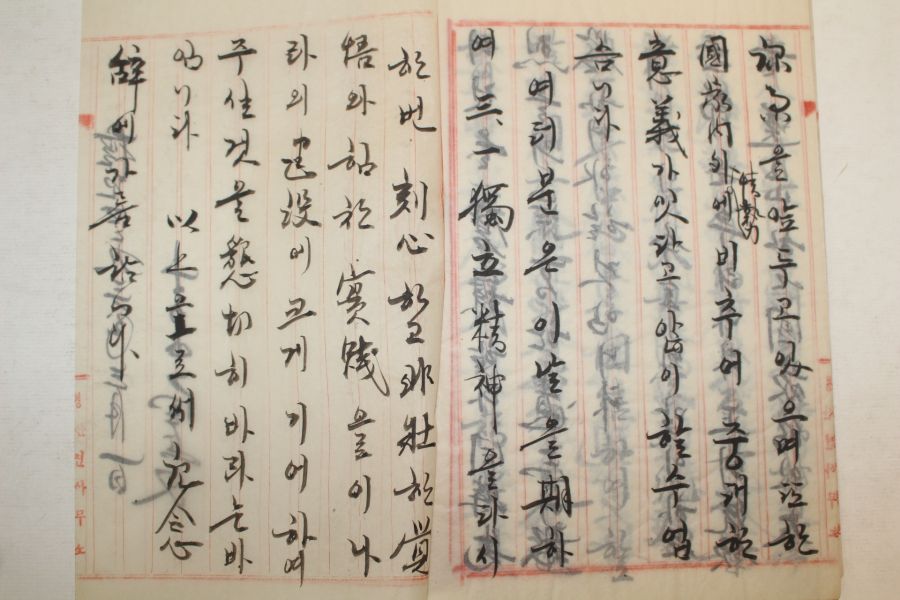 을 앞두고 있으며 또한
國家內外에 情勢 비추어 중대한
意義가 잇다고 안이할 수 업
슴니다
여러분은 이 날을 期하
여 三.一 獨立精神을 다시
한번 刻心하고 非壯한 覺
悟와 힘찬 實踐을 이 나
라의 建設에 크게 기여하여
주실 것을 懇切히 바라는 바
입니다 以上으로써 記念
辭에 가름합니다